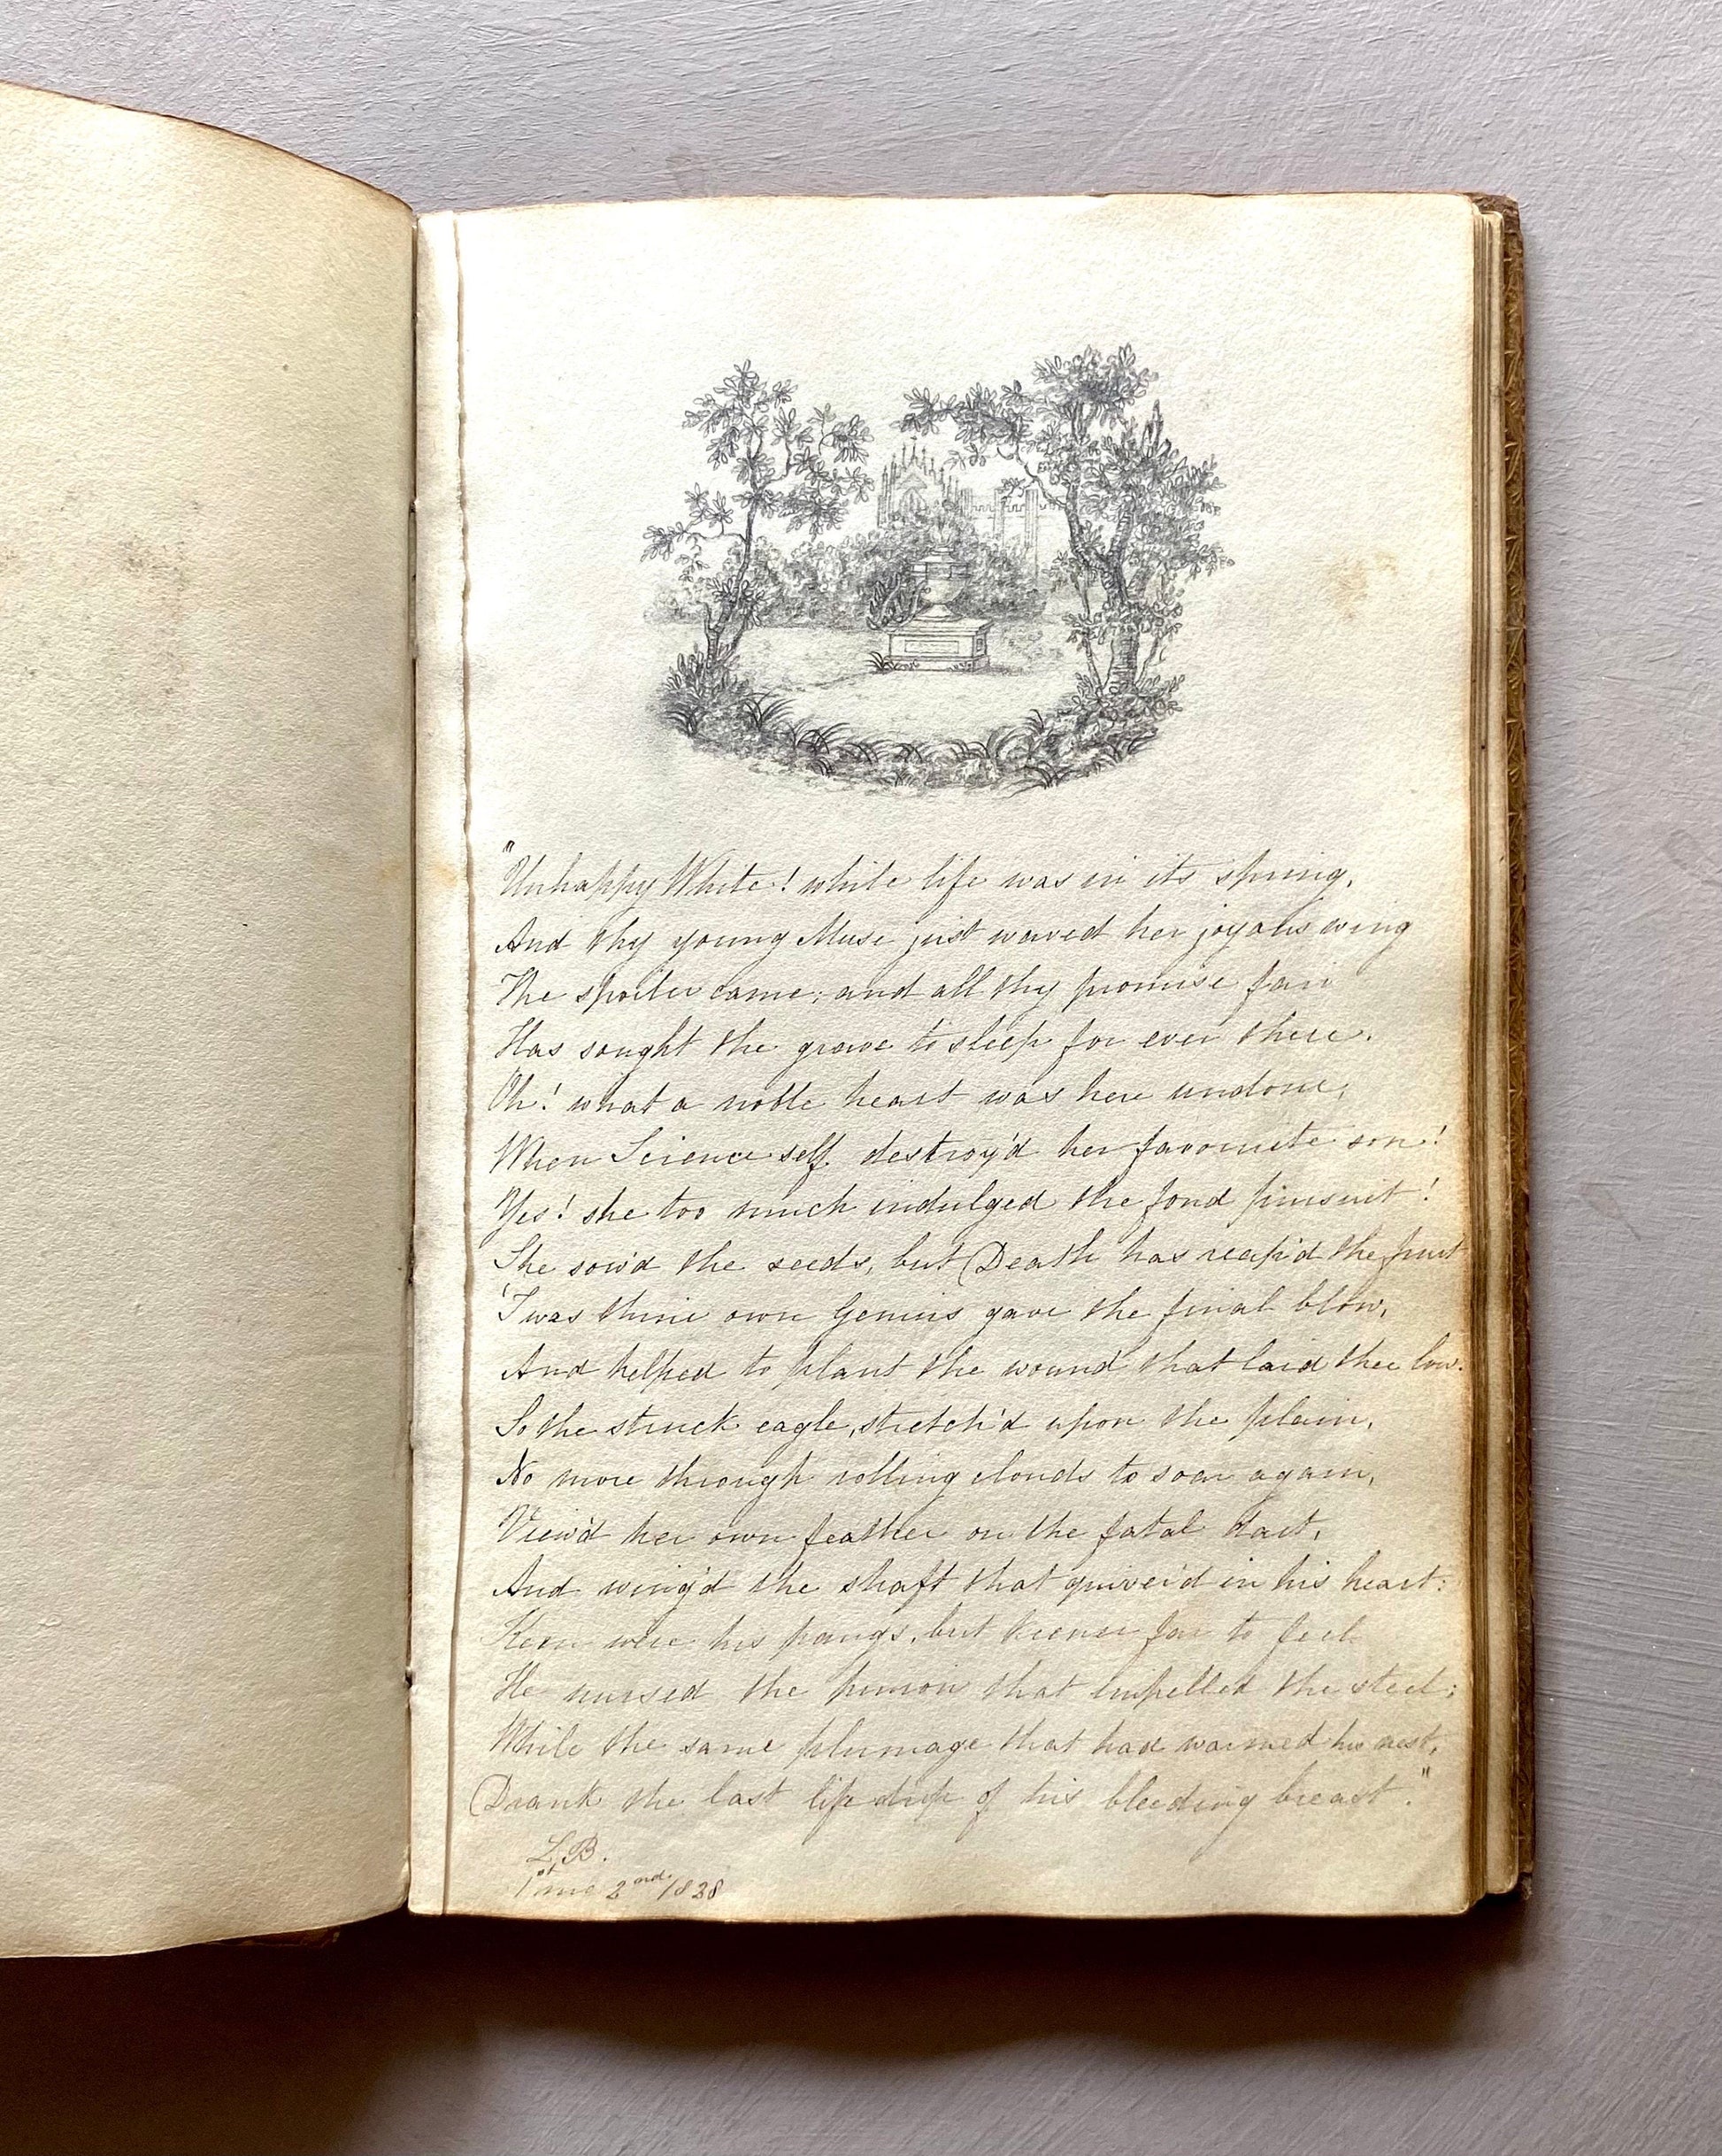 "Unhappy White! while life was in its spring,
And thy young Muse just waved her joyous wing
The spoiler came; and all thy promise fair
Has sought the grave to sleep for ever there.
Oh! what a noble heart was here undone,
When Science self destroy'd her favourite son!
Yes! she too much indulged the fond pursuit!
She sow'd the seeds, but Death has reap'd the fruit
'Twas thine own Genius gave the final blow,
And helped to plant the wound that laid thee low.
So the struck eagle, stretch'd upon the plain,
No more through rolling clouds to soar again,
View'd her own feather on the fatal dart,
And wing'd the shaft that quiver'd in his heart:
Keen were his pangs, but keener far to feel
He nursed the pinion that impelled the steel;
While the same plumage that had warmed his nest,
Drank the last life drop of his bleeding breast."
L.B.
June 2nd 1828